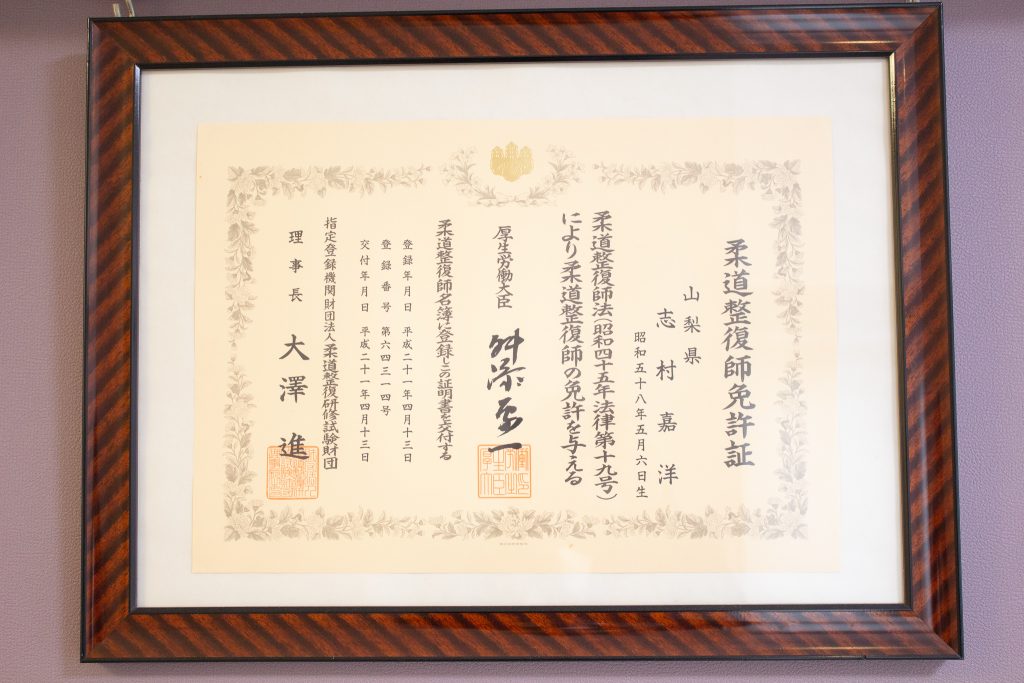 柔道整復師免許証
山梨県
志村嘉洋
昭和五十八年五月六日生
柔道整復師法(昭和四十五年法律第十九号)
により柔道整復師の免許を与える
厚生労働大臣 舛添要一
柔道整復師名簿に登録しこの証明書を交付する
登録年月日 平成二十一年四月十三日
登録番号 第六四三一四号
交付年月日 平成二十一年四月十三日
指定登録機関財団法人柔道整復研修試験財団
理事長 大澤進